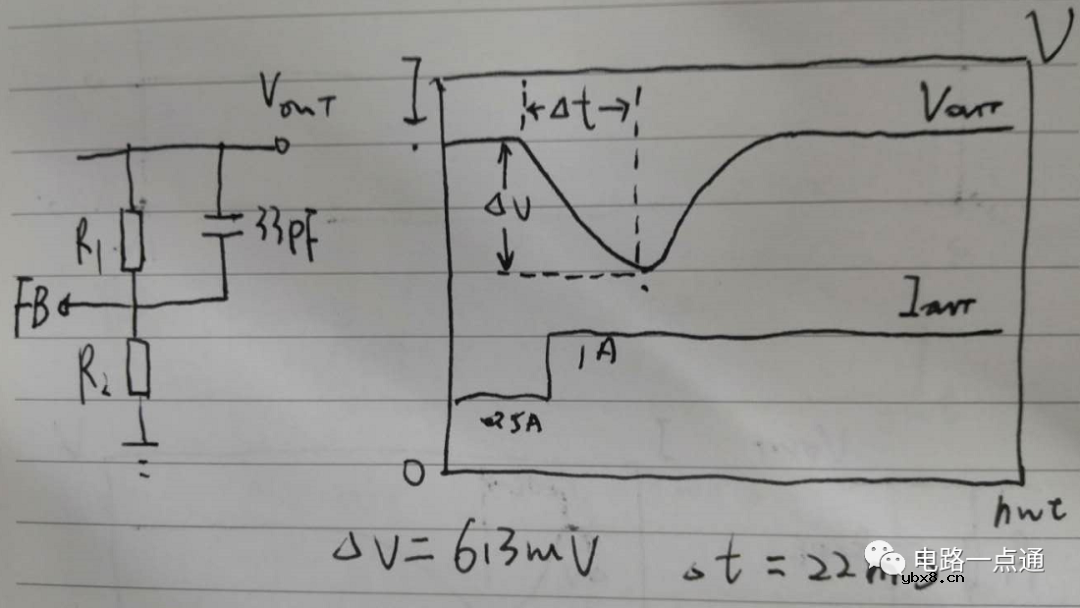 Vout
R1
33pF
FB
R2
I
V
Δt
Vout
ΔV
Iout
1A
.25A
0
ΔV = 613mV
Δt = 22m
电路一点通
ybx8.cn